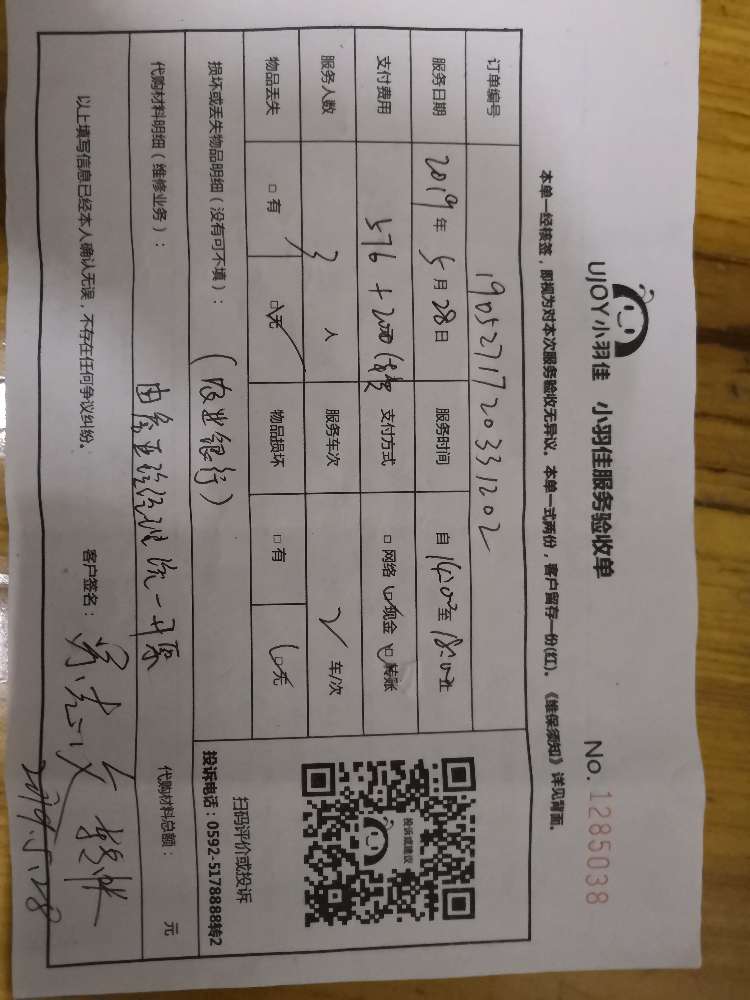 UJOY小羽佳 小羽佳服务验收单 No. 1285038
本单一经核签，即视为对本次服务验收无异议。本单一式两份，客户留存一份(红)。《维保须知》详见背面。
订单编号 1905271720331202
服务日期 2019年 5月 28日 服务时间 自 14:00 至 18:00 止
支付费用 576 + 200 支付方式 □网络 ☑现金 ☑转账
服务人数 3 人 服务车次 2 车/次
物品丢失 □有 ☑无 物品损坏 □有 ☑无
损坏或丢失物品明细（没有可不填）： (农业银行)
代购材料明细（维修业务）： 代购材料总额： 元
统一开票
以上填写信息已经本人确认无误，不存在任何争议纠纷。 客户签名：
2019.5.28
投诉或建议
扫码评价或投诉
投诉电话：0592-5178888转2